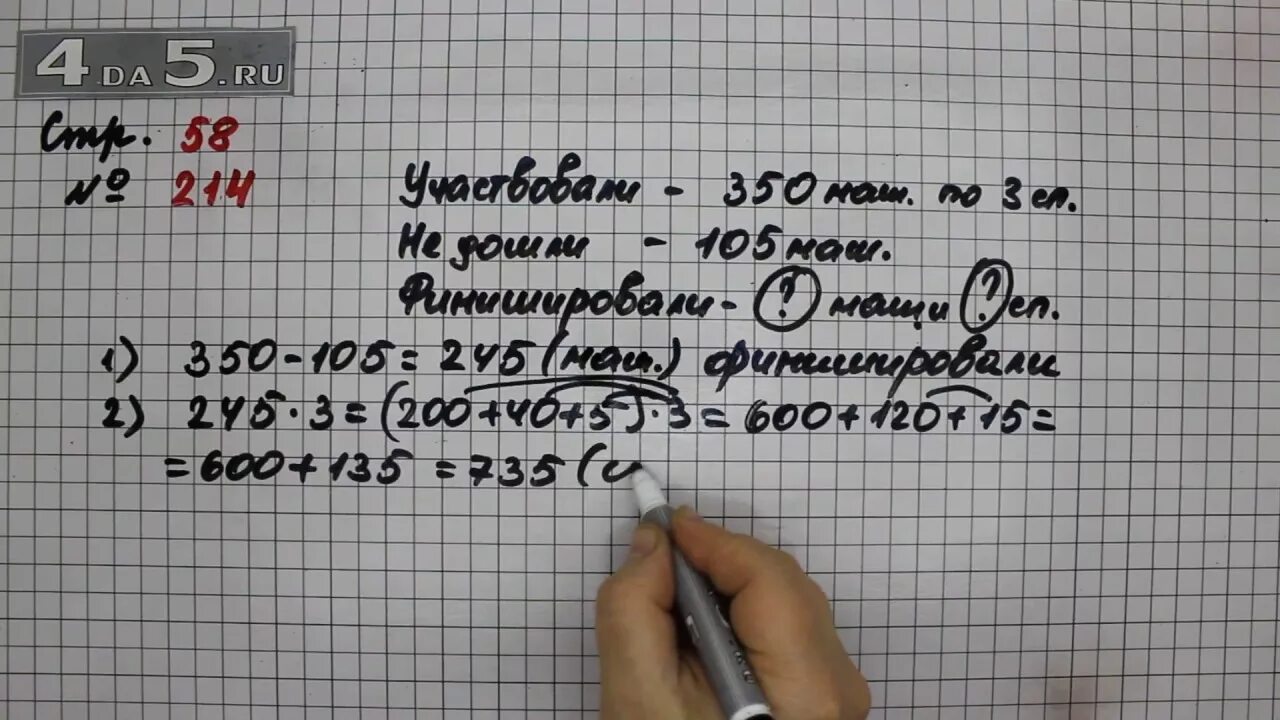 4.DA5.RU
Стр. 58
№ 214
Участвовали - 350 маш. по 3 сп.
Не дошли - 105 маш.
Финишировали - ? маш и ? сп.
1) 350 - 105 = 245 (маш.) финишировали
2) 245 · 3 = (200 + 40 + 5) · 3 = 600 + 120 + 15 =
= 600 + 135 = 735 (